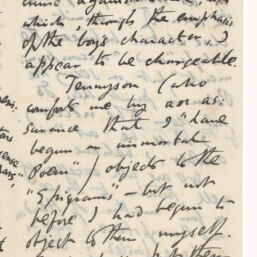 which, through the emphasis
of the boy's character, I
appear to be chargeable.
Tennyson (who
comforts me by
surance that I "have
begun an immortal
Poem") objects to the
"Epigrams" - but not
before I had begun to
object to them myself.